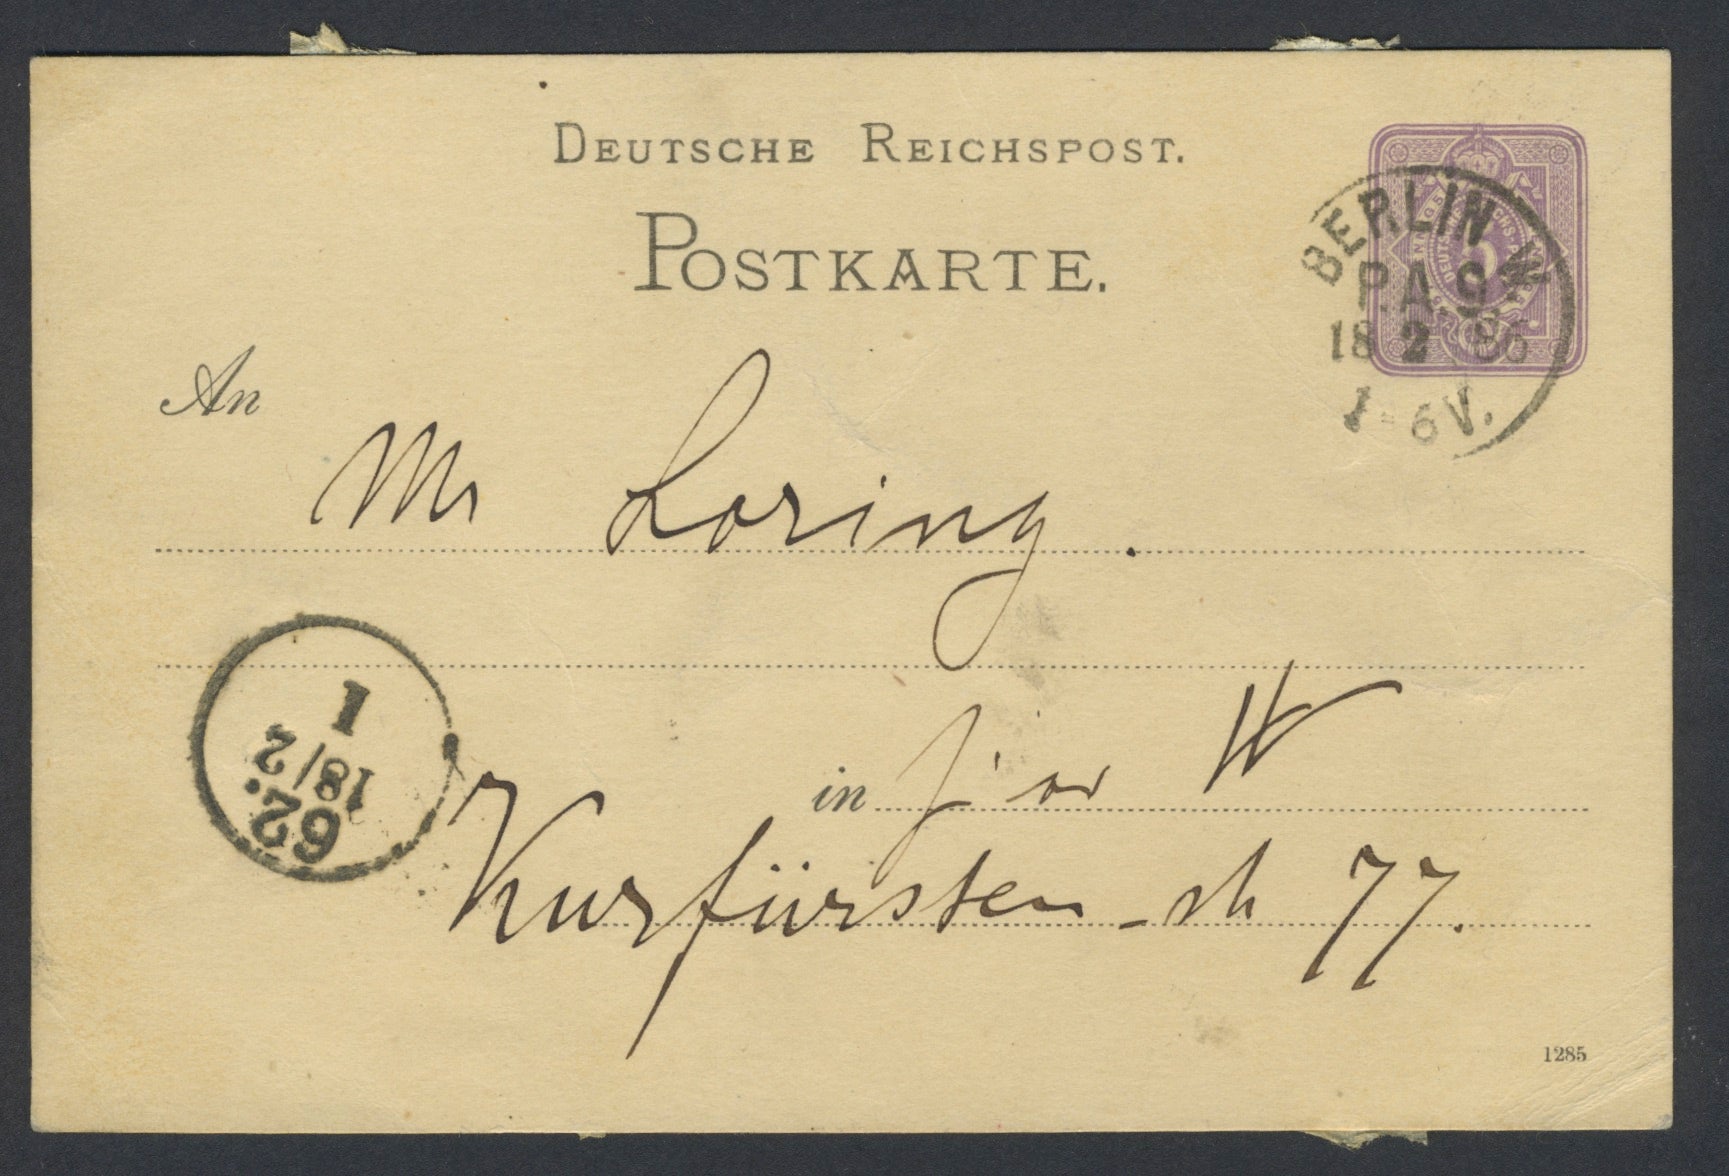 DEUTSCHE REICHSPOST.
POSTKARTE.
BERLIN W
P.A.9.
18 2 86
1-6V.
An
Mr Loring.
1
18/2
62.
in W
Kurfürsten-st 77.
1285